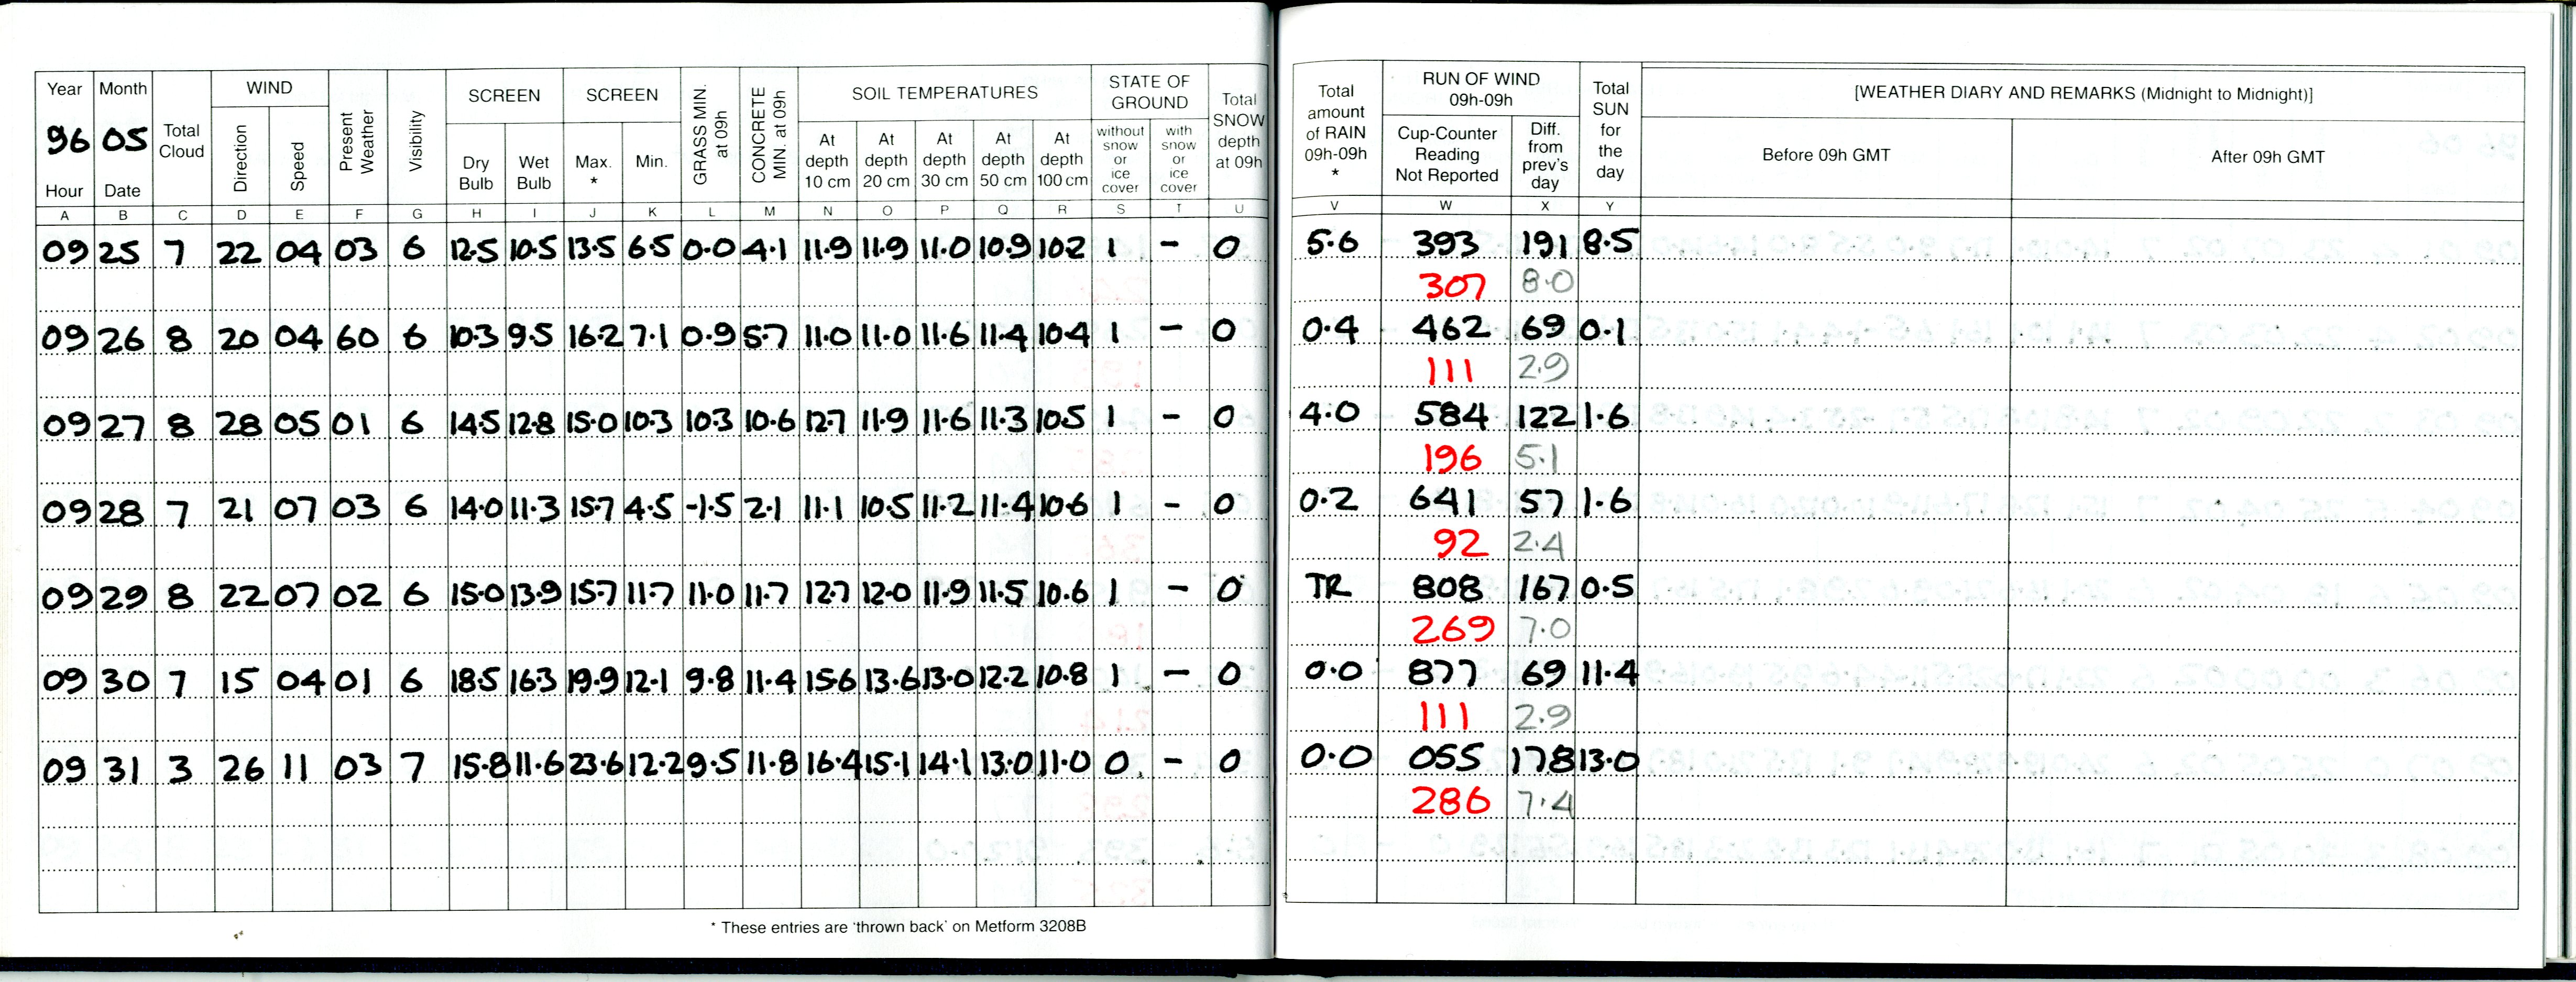 Year Month Total Cloud WIND Present Weather Visibility SCREEN SCREEN GRASS MIN. at 09h CONCRETE MIN. at 09h SOIL TEMPERATURES STATE OF GROUND Total SNOW depth at 09h Total amount of RAIN 09h-09h * RUN OF WIND 09h-09h Total SUN for the day [WEATHER DIARY AND REMARKS (Midnight to Midnight)]
96 05 Direction Speed Dry Bulb Wet Bulb Max. * Min. At depth 10 cm At depth 20 cm At depth 30 cm At depth 50 cm At depth 100 cm without snow or ice cover with snow or ice cover Cup-Counter Reading Not Reported Diff. from prev's day Before 09h GMT After 09h GMT
Hour Date
A B C D E F G H I J K L M N O P Q R S T U V W X Y
09 25 7 22 04 03 6 12.5 10.5 13.5 6.5 0.0 4.1 11.9 11.9 11.0 10.9 10.2 1 - 0 5.6 393 191 8.5
307 8.0
09 26 8 20 04 60 6 10.3 9.5 16.2 7.1 0.9 5.7 11.0 11.0 11.6 11.4 10.4 1 - 0 0.4 462 69 0.1
111 2.9
09 27 8 28 05 01 6 14.5 12.8 15.0 10.3 10.3 10.6 12.7 11.9 11.6 11.3 10.5 1 - 0 4.0 584 122 1.6
196 5.1
09 28 7 21 07 03 6 14.0 11.3 15.7 4.5 -1.5 2.1 11.1 10.5 11.2 11.4 10.6 1 - 0 0.2 641 57 1.6
92 2.4
09 29 8 22 07 02 6 15.0 13.9 15.7 11.7 11.0 11.7 12.7 12.0 11.9 11.5 10.6 1 - 0 TR 808 167 0.5
269 7.0
09 30 7 15 04 01 6 18.5 16.3 19.9 12.1 9.8 11.4 15.6 13.6 13.0 12.2 10.8 1 - 0 0.0 877 69 11.4
111 2.9
09 31 3 26 11 03 7 15.8 11.6 23.6 12.2 9.5 11.8 16.4 15.1 14.1 13.0 11.0 0 - 0 0.0 055 178 13.0
286 7.4
* These entries are 'thrown back' on Metform 3208B